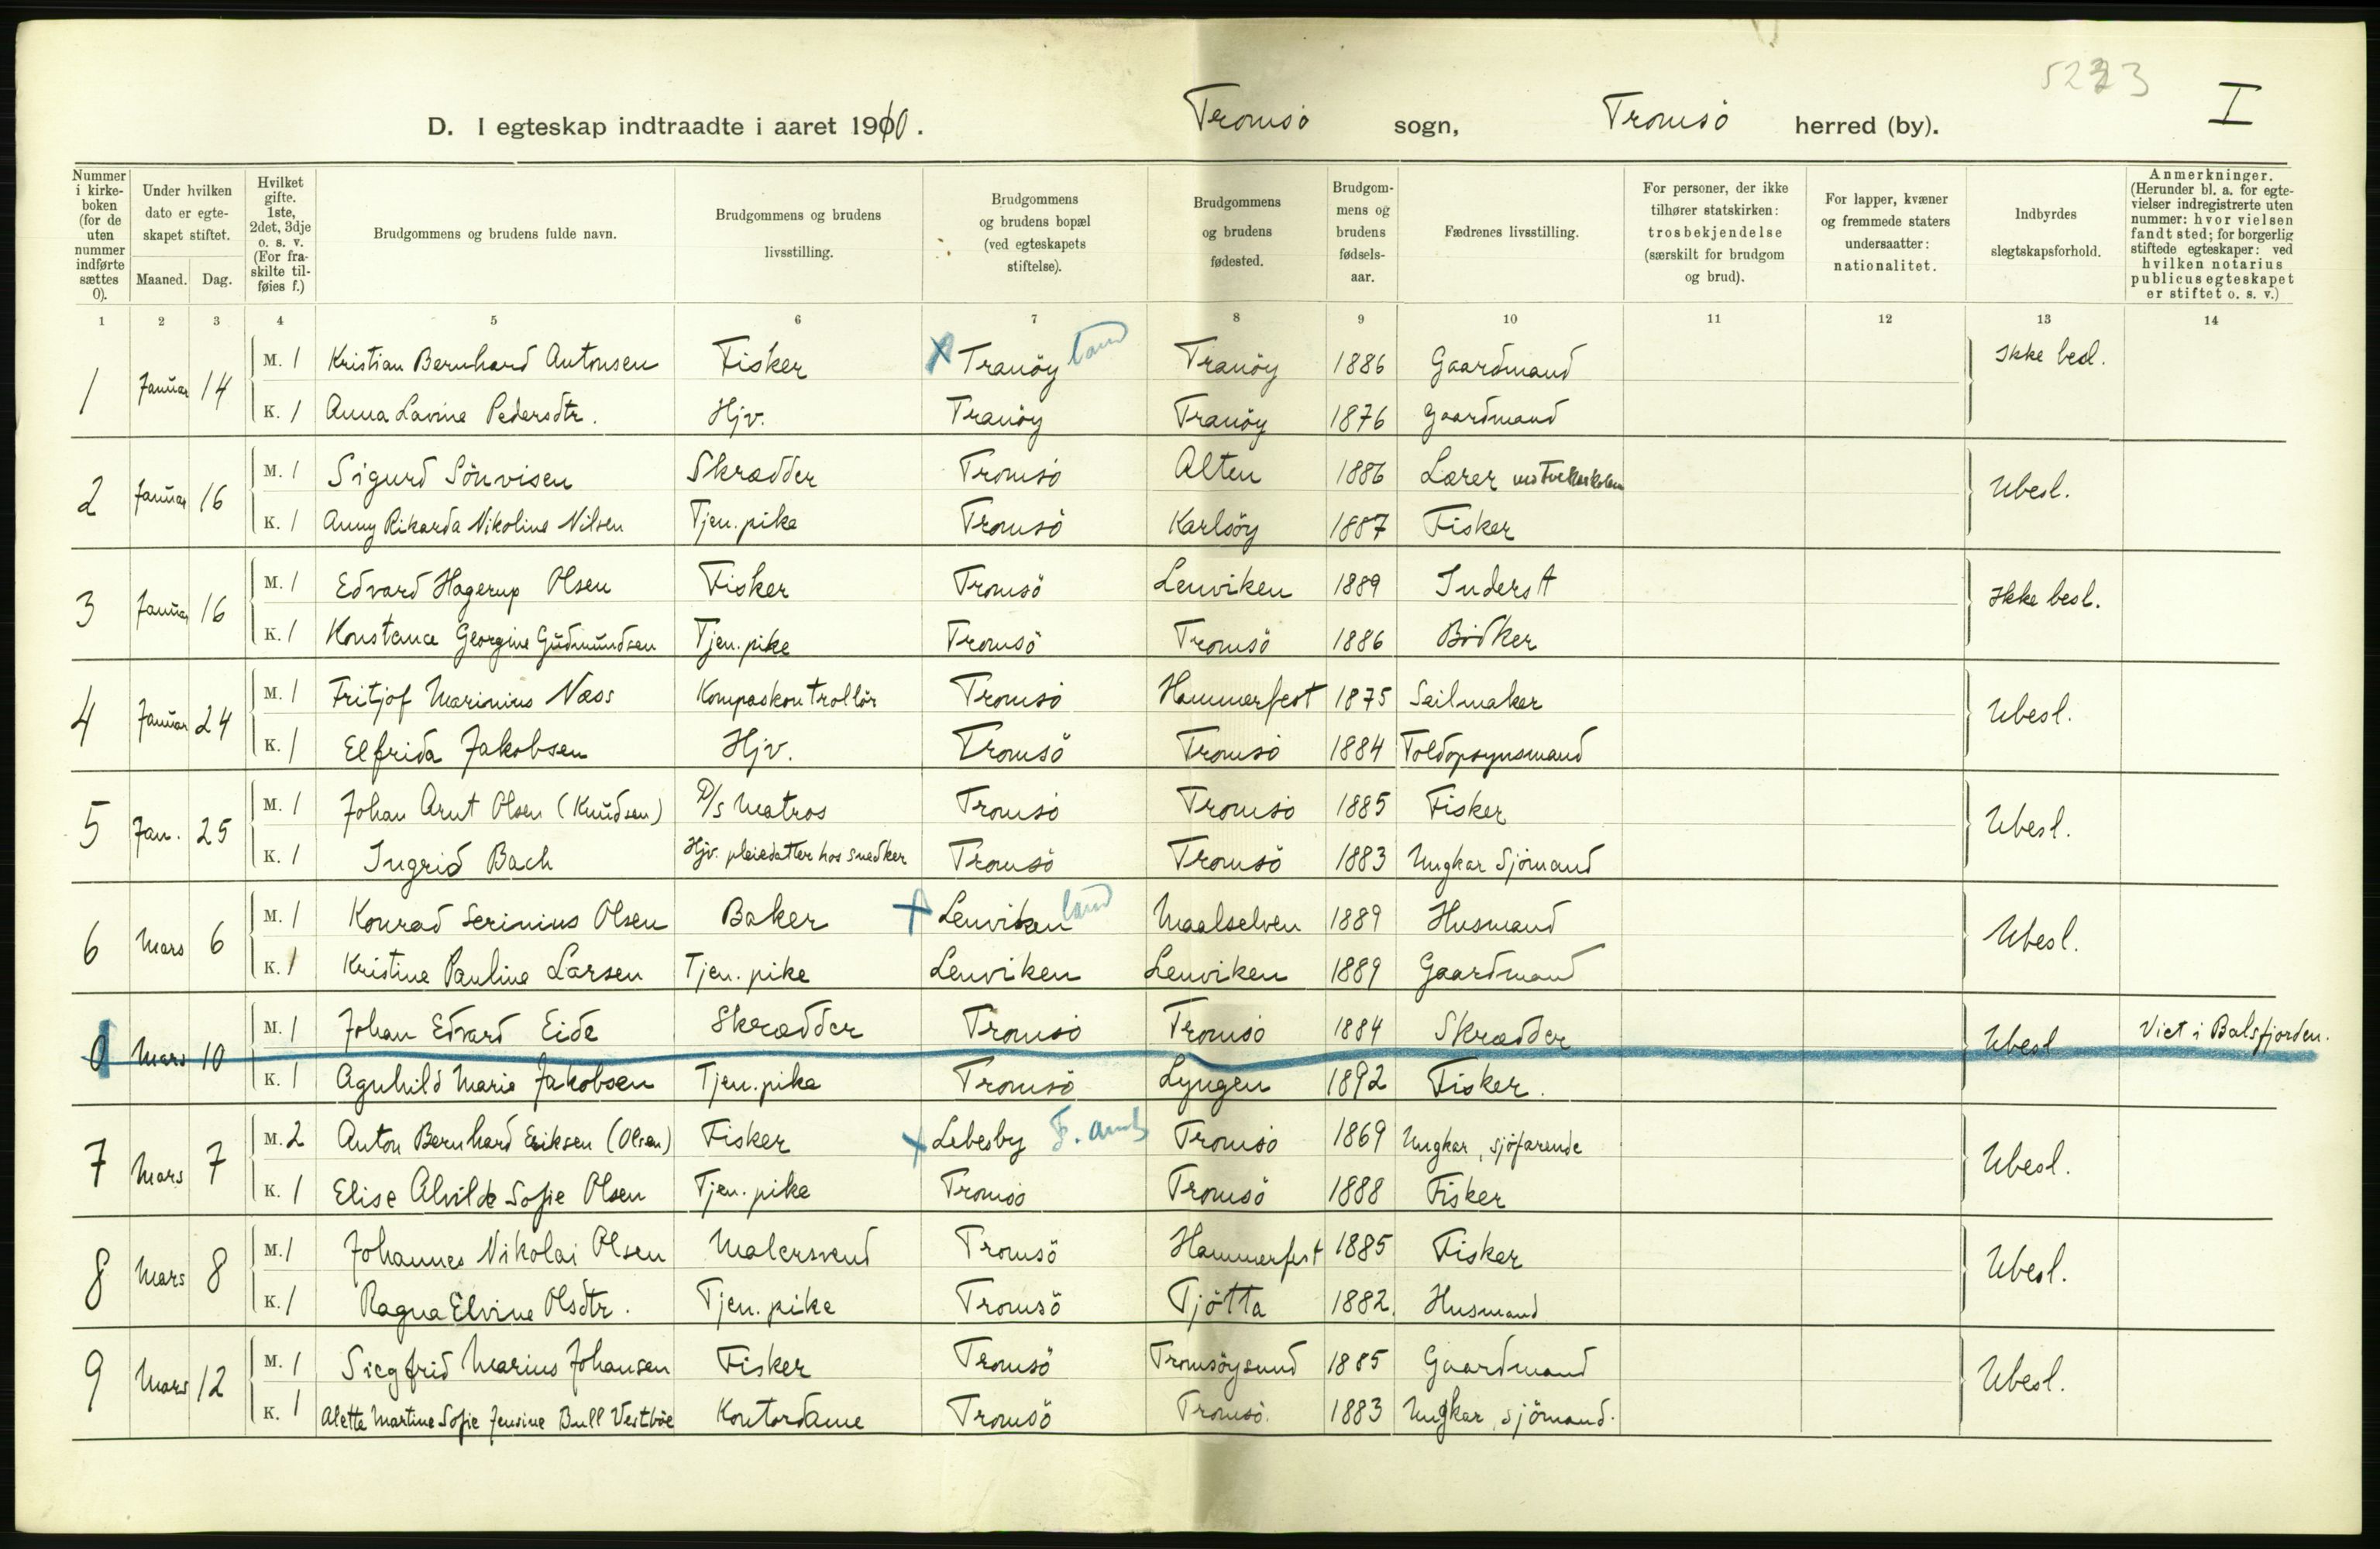 5223
I
D. I egteskap indtraadte i aaret 1910. Tromsö sogn, Tromsö herred (by).
Nummer i kirke- boken (for de uten nummer indførte sættes 0).
Under hvilken dato er egte- skapet stiftet.
Maaned. Dag.
Hvilket gifte. 1ste, 2det, 3dje o. s. v. (For fra- skilte til- føies f.)
Brudgommens og brudens fulde navn.
Brudgommens og brudens livsstilling.
Brudgommens og brudens bopæl (ved egteskapets stiftelse).
Brudgommens og brudens fødested.
Brudgom- mens og brudens fødsels- aar.
Fædrenes livsstilling.
For personer, der ikke tilhører statskirken: trosbekjendelse (særskilt for brudgom og brud).
For lapper, kvæner og fremmede staters undersaatter: nationalitet.
Indbyrdes slegtskapsforhold.
Anmerkninger. (Herunder bl. a. for egte- vielser indregistrerte uten nummer: hvor vielsen fandt sted; for borgerlig stiftede egteskaper: ved hvilken notarius publicus egteskapet er stiftet o. s. v.)
1 2 3 4 5 6 7 8 9 10 11 12 13 14
1 Januar 14 M. 1 Kristian Bernhard Antonsen Fisker X Tranöy land Tranöy 1886 Gaardmand Ikke besl.
K. 1 Anna Lavine Pedersdtr. Hjv. Tranöy Tranöy 1876 Gaardmand
2 Januar 16 M. 1 Sigurd Sönvisen Skrædder Tromsö Alten 1886 Lærer Ubesl.
K. 1 Anny Rikarda Nikoline Nilsen Tjen.pike Tromsö Karlsöy 1887 Fisker
3 Januar 16 M. 1 Edvard Hagerup Olsen Fisker Tromsö Lenviken 1889 Inderst Ikke besl.
K. 1 Konstance Georgine Gudmundsen Tjen.pike Tromsö Tromsö 1886 Bödker
4 Januar 24 M. 1 Fritjof Marinius Næss Kompaskontrollör Tromsö Hammerfest 1875 Seilmaker Ubesl.
K. 1 Elfrida Jakobsen Hjv. Tromsö Tromsö 1884 Toldopsynsmand
5 Jan. 25 M. 1 Johan Arnt Olsen (Knudsen) D/S Matros Tromsö Tromsö 1885 Fisker Ubesl.
K. 1 Ingrid Bach Hjv. pleiedatter hos snedker Tromsö Tromsö 1883 Ungkar Sjömand
6 Mars 6 M. 1 Konrad Serinius Olsen Baker + Lenviken land Maalselven 1889 Husmand Ubesl.
K. 1 Kristine Pauline Larsen Tjen.pike Lenviken Lenviken 1889 Gaardmand
0 Mars 10 M. 1 Johan Edvard Eide Skrædder Tromsö Tromsö 1884 Skrædder Ubesl Viet i Balsfjorden.
K. 1 Agnhild Marie Jakobsen Tjen.pike Tromsö Lyngen 1892 Fisker.
7 Mars 7 M. 2 Anton Bernhard Eriksen (Olsen) Fisker + Lebesby F. amt Tromsö 1869 Ungkar, sjöfarende Ubesl.
K. 1 Elise Alvilde Sofie Olsen Tjen.pike Tromsö Tromsö 1888 Fisker
8 Mars 8 M. 1 Johannes Nikolai Olsen Malersvend Tromsö Hammerfest 1885 Fisker Ubesl.
K. 1 Ragna Elvine Olsdtr. Tjen.pike Tromsö Tjötta 1882. Husmand
9 Mars 12 M. 1 Siegfrid Marius Johansen Fisker Tromsö Tromsöysund 1885 Gaardmand Ubesl.
K. 1 Alette Martine Sofie Jensine Bull Vestböe Kontordame Tromsö Tromsö. 1883 Ungkar, sjömand.